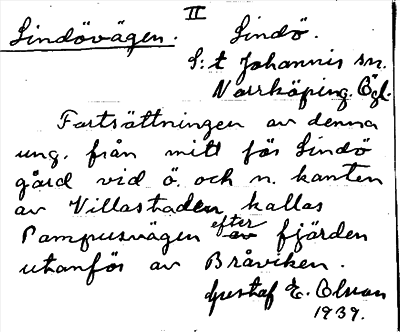 II
Lindövägen. Lindö.
S:t Johannis sn.
Norrköping. Ögl.
Fortsättningen av denna
ung. från mitt för Lindö
gård vid ö. och n. kanten
av Villastaden kallas
Pampusvägen efter av fjärden
utanför av Bråviken.
Gustaf E. Olsson
1939.